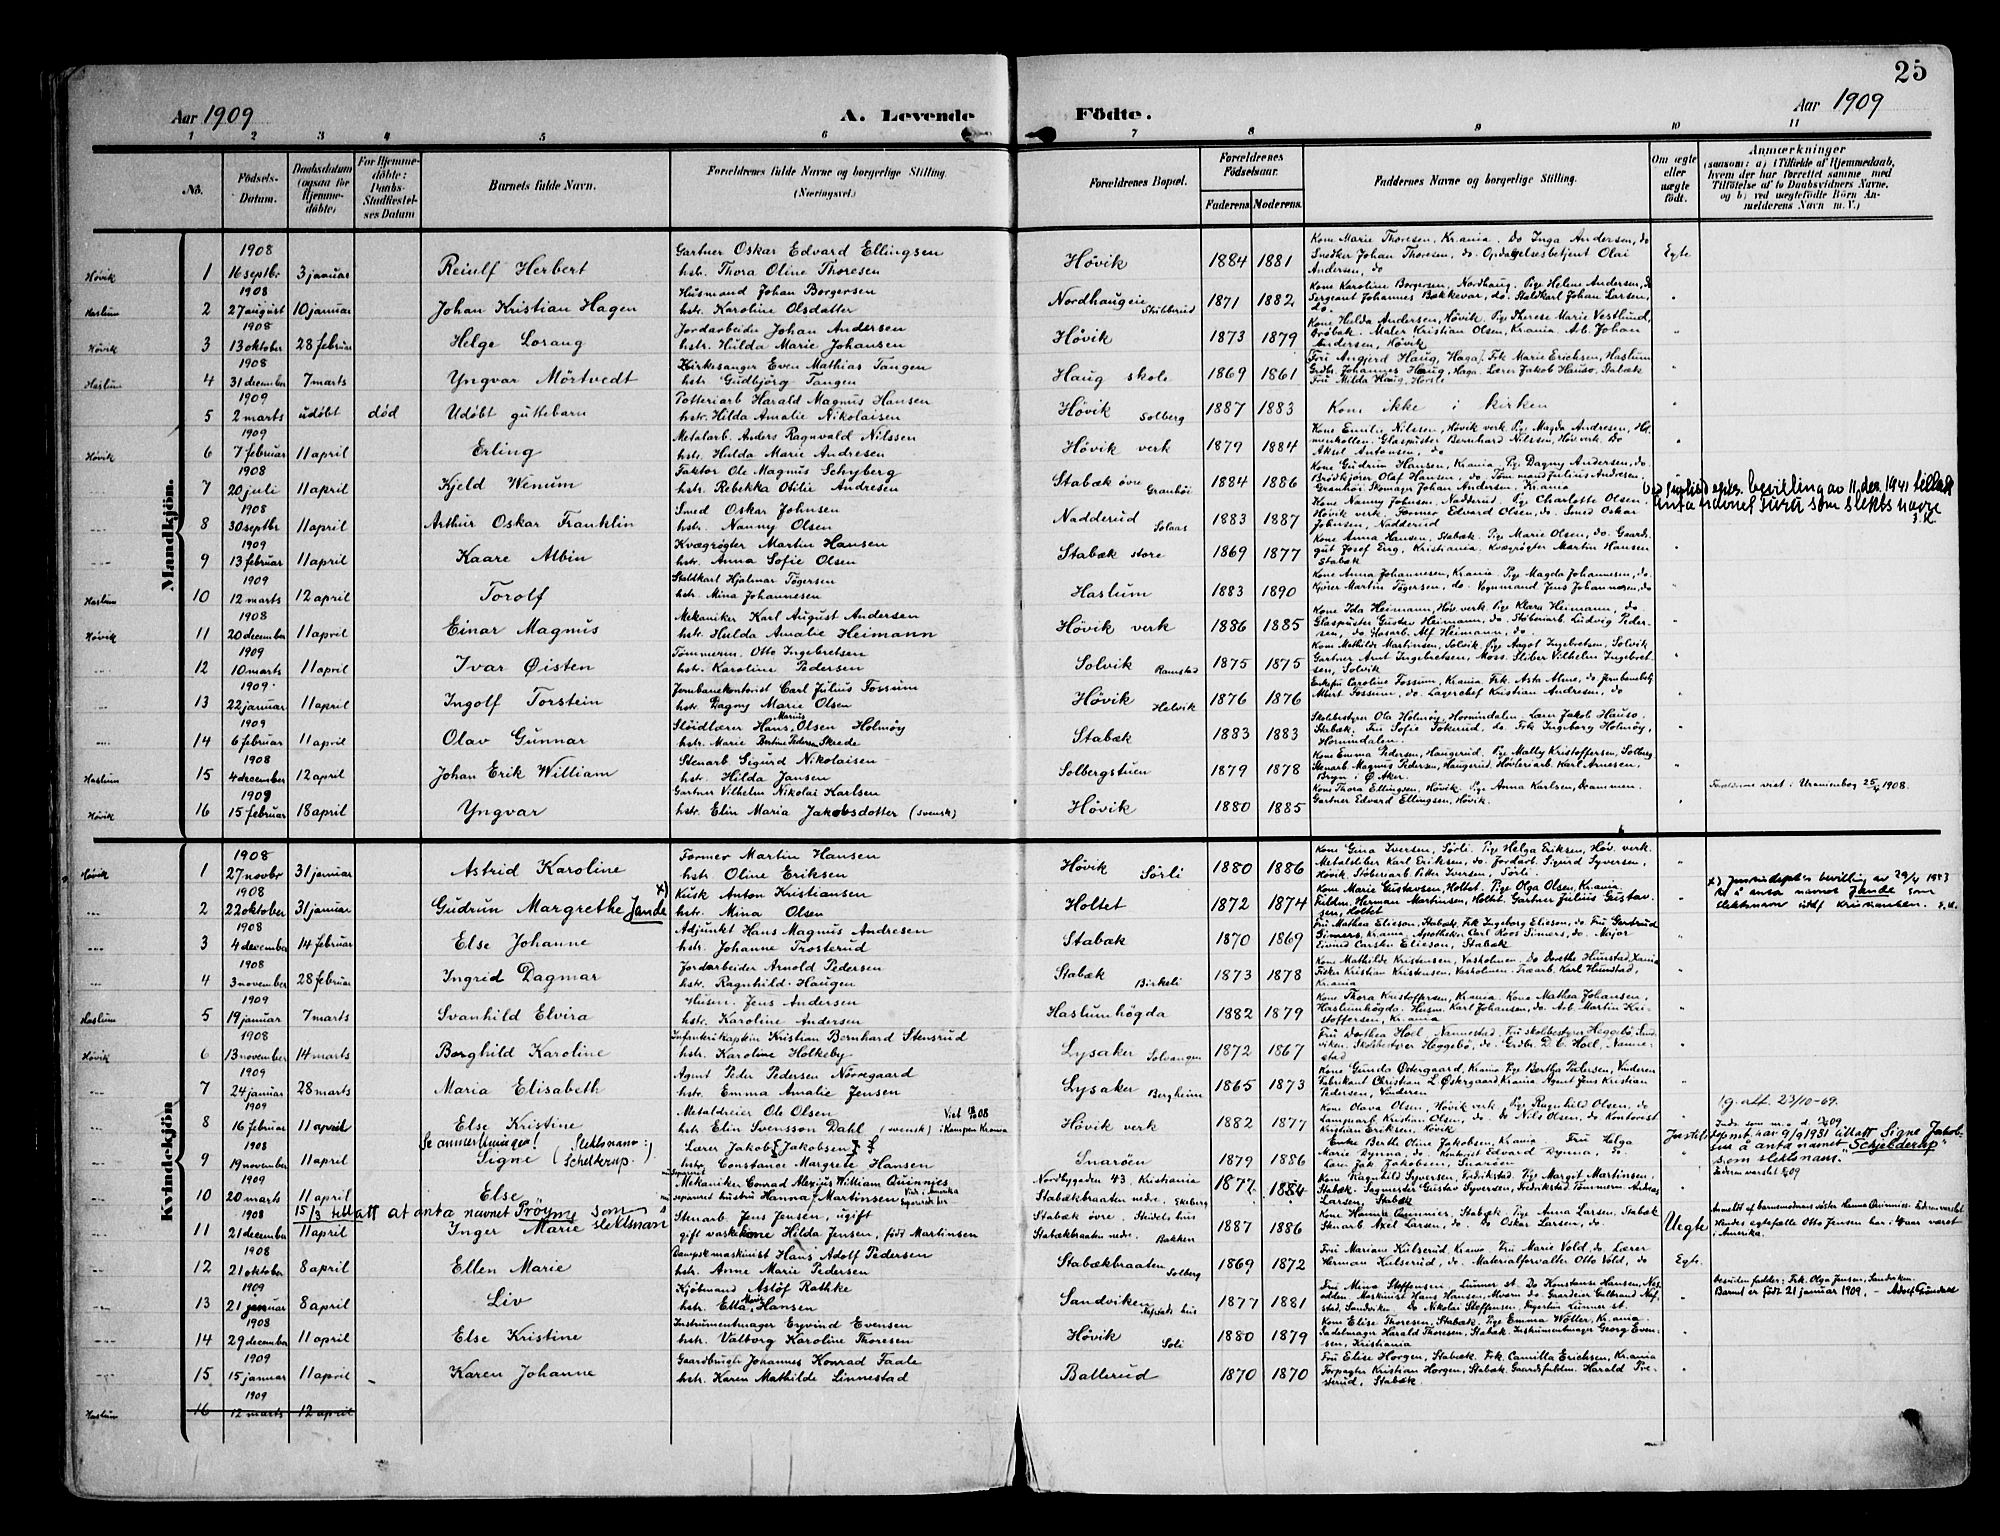 25
Aar 1909
A. Levende
Födte.
Aar 1909
1 2 3 4 5 6 7 8 9 10 11
No.
Födsels-Datum.
Daabsdatum (ogsaa for Hjemmedöbte)
For Hjemmedöbte: Daabs-Stadfæstelses Datum
Barnets fulde Navn.
Forældrenes fulde Navne og borgerlige Stilling. (Næringsvei.)
Forældrenes Bopæl.
Forældrenes Födselsaar.
Faderens. Moderens.
Faddernes Navne og borgerlige Stilling.
Om ægte eller uægte födt.
Anmærkninger (saasom: a) i Tilfælde af Hjemmedaab, hvem der har forrettet samme med Tilföielse af to Daabsvidners Navne, og b) ved uægtefödte Börn Anmelderens Navn m. V.)
Mandkjön.
Hövik 1 1908 16 septbr 3 januar Reiulf Herbert Gartner Oskar Edvard Ellingsen hstr. Thora Oline Thoresen Hövik 1884 1881 Kone Marie Thoresen, Kr.ania. Do Inga Andersen, do Snedker Johan Thoresen, do. Olai Andersen, do Egte
Haslum 2 1908 27 august 10 januar Johan Kristian Hagen Husmand Johan Borgersen hstr. Karoline Olsdatter Nordhaugeie 1871 1882 Kone Karoline Borgersen, Nordhaug. Pige Helene Andersen, do Sergeant Johannes Bakkevar, do. Staldkarl Johan Larsen, do.
Hövik 3 1908 13 oktober 28 februar Helge Lorang Jordarbeider Johan Andersen hstr. Hulda Marie Johansen Hövik 1873 1879 Kone Helda Andersen, Hövik. Pige Therese Marie Vestlund, Maler Kristian Olsen, Krania. Arb. Johan Andersen, Hövik
Haslum 4 1908 31 december 7 marts Yngvar Mörtvedt Kirkesanger Even Mathias Tangen hstr Gudbjörg Tangen Haug skole 1869 1861 Fru Angjerd Haug, Haga. Frk Marie Erichsen, Haslum Grdb. Johannes Haug, Haga. Lærer Jakob Hauso, Stabæk Fru Milda Haug,
5 1909 2 marts udöbt död Udöbt guttebarn Potteriarb Harald Magnus Hansen hstr. Hilda Amalie Nikolaisen Hövik Solberg 1887 1883 Kom ikke i kirken
Hövik 6 1909 7 februar 11 april Erling Metalarb. Anders Ragnvald Nilssen hstr. Hulda Marie Andresen Hövik verk 1879 1884 Kone Emilie Nilsen, Hövik verk. Pige Magda Andresen, Glaspuster Bernhard Nilsen, Höv. verk. Do Aksel Antonsen, do
7 1908 20 juli 11 april Kjeld Wenum Faktor Ole Magnus Schyberg hstr. Rebekka Otilie Andresen Stabæk övre Granhöi 1884 1886 Kone Gudrun Hansen, Krania Pige Dagny Andersen, do. Brödkjörer Olaf Hansen, do. Tömmermand Julius Andresen, Granhöi Skomager Johan Andersen Krania
8 1908 30 septbr 11 april Arthur Oskar Franklin Smed Oskar Johnsen hstr. Nanny Olsen Nadderud Solaas 1883 1887 Kone Nanny Johnsen, Nadderud. Pige Charlotte Olsen Hövik verk. Former Edvard Olsen, do. Smed Oskar Johnsen, Nadderud
bevilling av 11. des. 1941 tillatt å anta navnet Furu som slektsnavn
9 1909 13 februar 11 april Kaare Albin Kvægrögter Martin Hansen hstr. Anna Sofie Olsen Stabæk store 1869 1877 Kone Anna Hansen, Stabæk. Pige Marie Olsen, do. Gaardsgut Josef Eng, Kristiania. Kvægrögter Martin Hansen Stabæk
Haslum 10 1909 12 marts 12 april Torolf Staldkarl Hjalmar Tögersen hstr. Mina Johannesen Haslum 1883 1890 Kone Anna Johannesen, Krania Pige Magda Johannesen, do. Martin Tögersen, do. Vognmand Jens Johannesen, do
Hövik 11 1908 20 december 11 april Einar Magnus Mekaniker Karl August Andersen hstr. Hulda Amalie Heimann Hövik verk 1886 1885 Kone Ida Heimann, Höv. verk. Pige Klara Heimann, do Glaspuster Gustav Heimann, do. Ludvig Pedersen, do. Alf Heimann, do.
12 1909 10 marts 11 april Ivar Øisten Tömmerm. Otto Ingebretsen hstr. Karoline Pedersen Solvik Ramstad 1875 1875 Kone Mathilde Martinsen, Solvik. Pige Aagot Ingebretsen, Solvik Gartner Arnt Ingebretsen, Moss. Sliber Vilhelm Ingebretsen, Solvik
13 1909 22 januar 11 april Ingolf Torstein Jernbanekontorist Carl Julius Tossum hstr. Dagny Marie Olsen Hövik Helvik 1876 1876 Caroline Fossum, Krania. Frk. Asta Albert Fossum, do. Lagerchef Kristian Andresen, do
14 1909 6 februar 11 april Olav Gunnar Slöidlærer Hans Marius Olsen Holmöy hstr. Marie Bertine Pedersen Skrede Stabæk 1883 1883 Skolebestyrer Ola Holmöy, Hornindalen. Lærer Jakob Hauso. Stabæk. Fru Sofie Tokerud, do. Frk Ingeborg Holmöy, Hornindalen.
Haslum 15 1908 4 december 12 april Johan Erik William Stenarb. Sigurd Nikolaisen hstr. Hilda Jansen Solbergstuen 1879 1878 Kone Emma Pedersen, Haugerud. Pige Mally Kristoffersen, Solberg Stenarb Magnus Pedersen, Haugerud. Hövleriarb Karl Arnesen. Bryn i Ø. Aker.
Hövik 16 1909 15 februar 18 april Yngvar Gartner Vilhelm Nikolai Karlsen hstr. Elin Maria Jakobsdotter (svensk) Hövik 1880 1885 Kone Thora Ellingsen, Hövik. Pige Anna Karlsen, Drammen. Gartner Edvard Ellingsen, Hövik. Forældrene viet i Uranienborg 1908.
Kvindekjön
Hövik 1 1908 27 novbr 31 januar Astrid Karoline Former Martin Hansen hstr Oline Eriksen Hövik Sörli 1880 1886 Kone Gina Iversen, Sörli. Pige Helga Eriksen, Höv. verk. Metalsliber Karl Eriksen, do. Jordarb. Sigurd Syversen, Hövik. Petter Iversen, Sörli.
2 1908 22 oktober 31 januar Gudrun Margrethe Jande x) Kusk Anton Kristiansen hstr. Mina Olsen Holtet 1872 1874 Kone Marie Gustavsen, Holtet. Pige Olga Olsen, Krania. Herman Martinsen, Holtet. Gartner Julius Gustavsen, Holtet
x) bevilling av 29/4 1943 til å anta navnet Jande som slektsnavn
3 1908 4 december 14 februar Else Johanne Adjunkt Hans Magnus Andresen hstr. Johanne Trosterud Stabæk 1870 1869 Fru Mathea Elieson, Stabæk, Frk Ingeborg Elieson, do Fru Gertrud Simers, Krania. Apotheker Carl Roos Simers, do. Major Eivind Carsten Elieson, Stabæk
4 1908 3 november 28 februar Ingrid Dagmar Jordarbeider Arnold Pedersen hstr. Ragnhild Haugen Stabæk Birkeli 1873 1878 Kone Mathilde Kristensen, Vasholmen. Do Dorethe Hunstad, Krania Fisker Kristian Kristensen, Vasholmen. Træarb. Karl Hunstad, Krania
Haslum 5 1909 19 januar 7 marts Svanhild Elvira Husm. Jens Andersen hstr. Karoline Andersen Haslumhögda 1882 1879 Kone Thora Kristoffersen, Krania. Kone Mathea Johansen, Haslumhögda. Husm. Karl Johansen, do. Arb. Martin Kristoffersen, Krania
Hövik 6 1908 13 november 14 marts Borghild Karoline Infanterikaptein Kristian Bernhard Stensrud hstr. Karoline Holkeby Lysaker Solvangen 1872 1867 Fru Dorthea Hoel, Nannestad. Fru skolebestyrer Heggebö, Sandviken. Skolebestyrer Heggebö, do. Grdbr. D. C. Hoel, Nannestad
7 1909 24 januar 28 marts Maria Elisabeth Agent Peder Pedersen Nörregaard hstr. Emma Amalie Jensen Lysaker Bergheim 1865 1873 Kone Gunda Östergaard, Krania Pige Bertha Pedersen, Vinderen Fabrikant Christian L. Østergaard, Krania Agent Jens Kristian Pedersen, Vinderen
8 1909 16 februar 11 april Else Kristine Metaldreier Ole Olsen hstr. Elin Svensson Dahl (svensk) Viet 08 i Kampen Krania Hövik verk 1882 1877 Kone Olava Olsen, Hövik verk. Pige Ragnhild Olsen, do Kristian Olsen, do. do Nils Olsen, do. Kontorist Kristian Eriksen, Hövik
lg. att. 23/10-69.
9 1908 19 november 11 april Se anmerkninger! Signe (Slektsnavn: Schelterup.) Lærer Jakob Jakobsen hstr. Constance Margrete Hansen Snaröen 1879 1886 Enke Berthe Oline Jakobsen, Krania. Fru Helga Marie Rynna, do. Kontorist Edvard Rynna, do. Lærer Jak. Jakobsen, Snaröen
9/9 1931 tillatt Signe Jakobsen å anta navnet "Schjelderup" som slektsnavn.
10 1909 20 marts 11 april Else Mekaniker Conrad Alexius William Quinnies separeret hustru Hanna f. Martinsen Nordbygaden 43, Kristiania Stabækbraaten nedre. 1877 1884 Kone Ragnhild Syversen, Fredrikstad. Pige Margit Martinsen, Stabæk. Sagmester Gustav Syversen, Fredrikstad Tömmerm. Andreas Larsen, Stabæk
15/3 tillatt at anta navnet Pröyme som slektsnavn
11 1908 21 december 11 april Inger Marie Stenarb. Jens Jensen, ugift gift vaskekone Hilda Jensen, född Martinsen Stabæk övre. Stabækbraaten nedre. Bakken 1887 1886 Kone Hanna Quinnies, Stabæk. Pige Anna Larsen, Stabæk Stenarb. Axel Larsen, do. Do Oskar Larsen, do. Uegte Anmeldt af barnemoderens söster Hanna Quinnies. Hendes egtefælle Otto Jensen har i 4 aar været i Amerika.
12 1908 21 oktober 8 april Ellen Marie Dampsk.maskinist Hans Adolf Pedersen hstr. Anne Marie Pedersen Stabækbraaten Solberg 1869 1872 Fru Mariane Kulserud, Krania Fru Marie Vold, do. Lærer Herman Kulserud, do. Materialforvalter Otto Vold, do Egte.
13 1909 21 januar 8 april Liv Kjöbmand Astöf Rathke hstr. Etta Marie Hansen Sandviken 1877 1881 Fru Mina Steffensen, Lunner st. Do Konstanse Hansen, Maskinist Hans Hansen, do. Gaardeier Gulbrand Sandviken Do Nikolai Steffensen, Lunner st. Frk. Olga Jensen, Sandviken. Barnet er födt 21 januar 1909,
14 1908 29 december 11 april Else Kristine Instrumentmager Eyvind Evensen hstr. Valborg Karoline Thoresen Hövik Soli 1880 1879 Kone Elise Thoresen, Stabæk. Pige Emma Wötter, Krania. Sadelmager Harald Thoresen, Stabæk. Instrumentmager Georg Evensen, Kristiania
15 1909 15 januar 11 april Karen Johanne Gaardbruger Johannes Konrad Faale hstr. Karen Mathilde Linnestad Ballerud 1870 1870 Fru Elise Horgen, Stabæk. Frk. Camilla Erichsen, Krania Forpagter Kristian Horgen, Stabæk. Gaardsfuldm. Harald Presterud, Stabæk.
Haslum 16 1909 12 marts 12 april